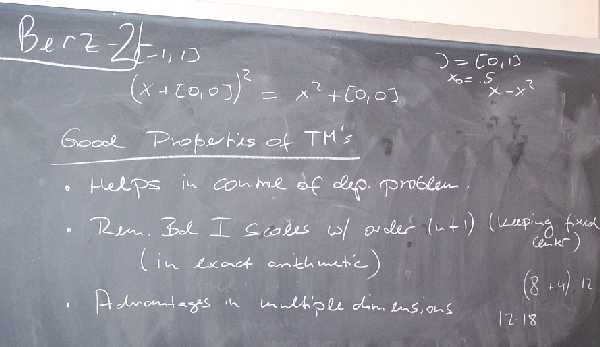 Berz-2
[-1,1]
J = [0,1]
x₀ = .5
x-x²
(x+[0,0])² = x² + [0,0]
Good Properties of TM's
• Helps in control of dep. problem.
• Rem. Bd I scales w/ order (n+1) (keeping fixed center)
(in exact arithmetic)
• Advantages in multiple dimensions
(8+4).12
12.18